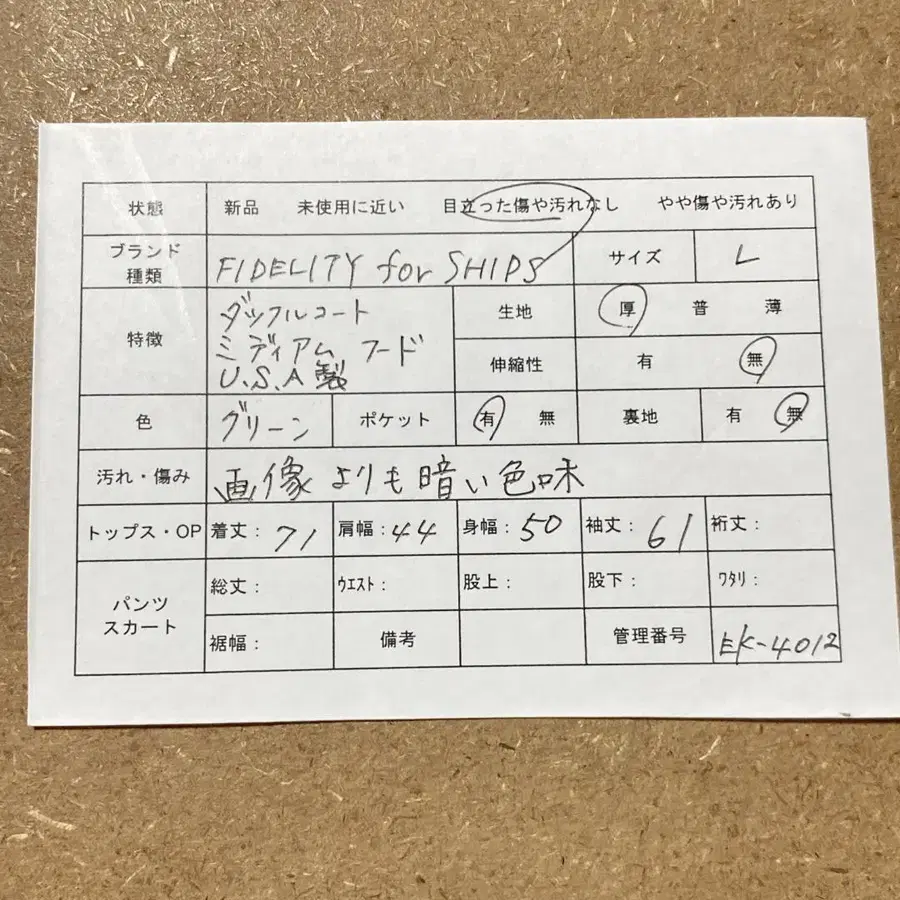 状態 新品 未使用に近い 目立った傷や汚れなし やや傷や汚れあり
ブランド 種類 FIDELITY for SHIPS サイズ L
特徴 ダッフルコート
ミディアム フード
U.S.A製
生地 厚 普 薄
伸縮性 有 無
色 グリーン ポケット 有 無 裏地 有 無
汚れ・傷み 画像よりも暗い色味
トップス・OP 着丈: 71 肩幅: 44 身幅: 50 袖丈: 61 裄丈:
パンツ スカート 総丈: ウエスト: 股上: 股下: ワタリ:
裾幅: 備考 管理番号 EK-4012